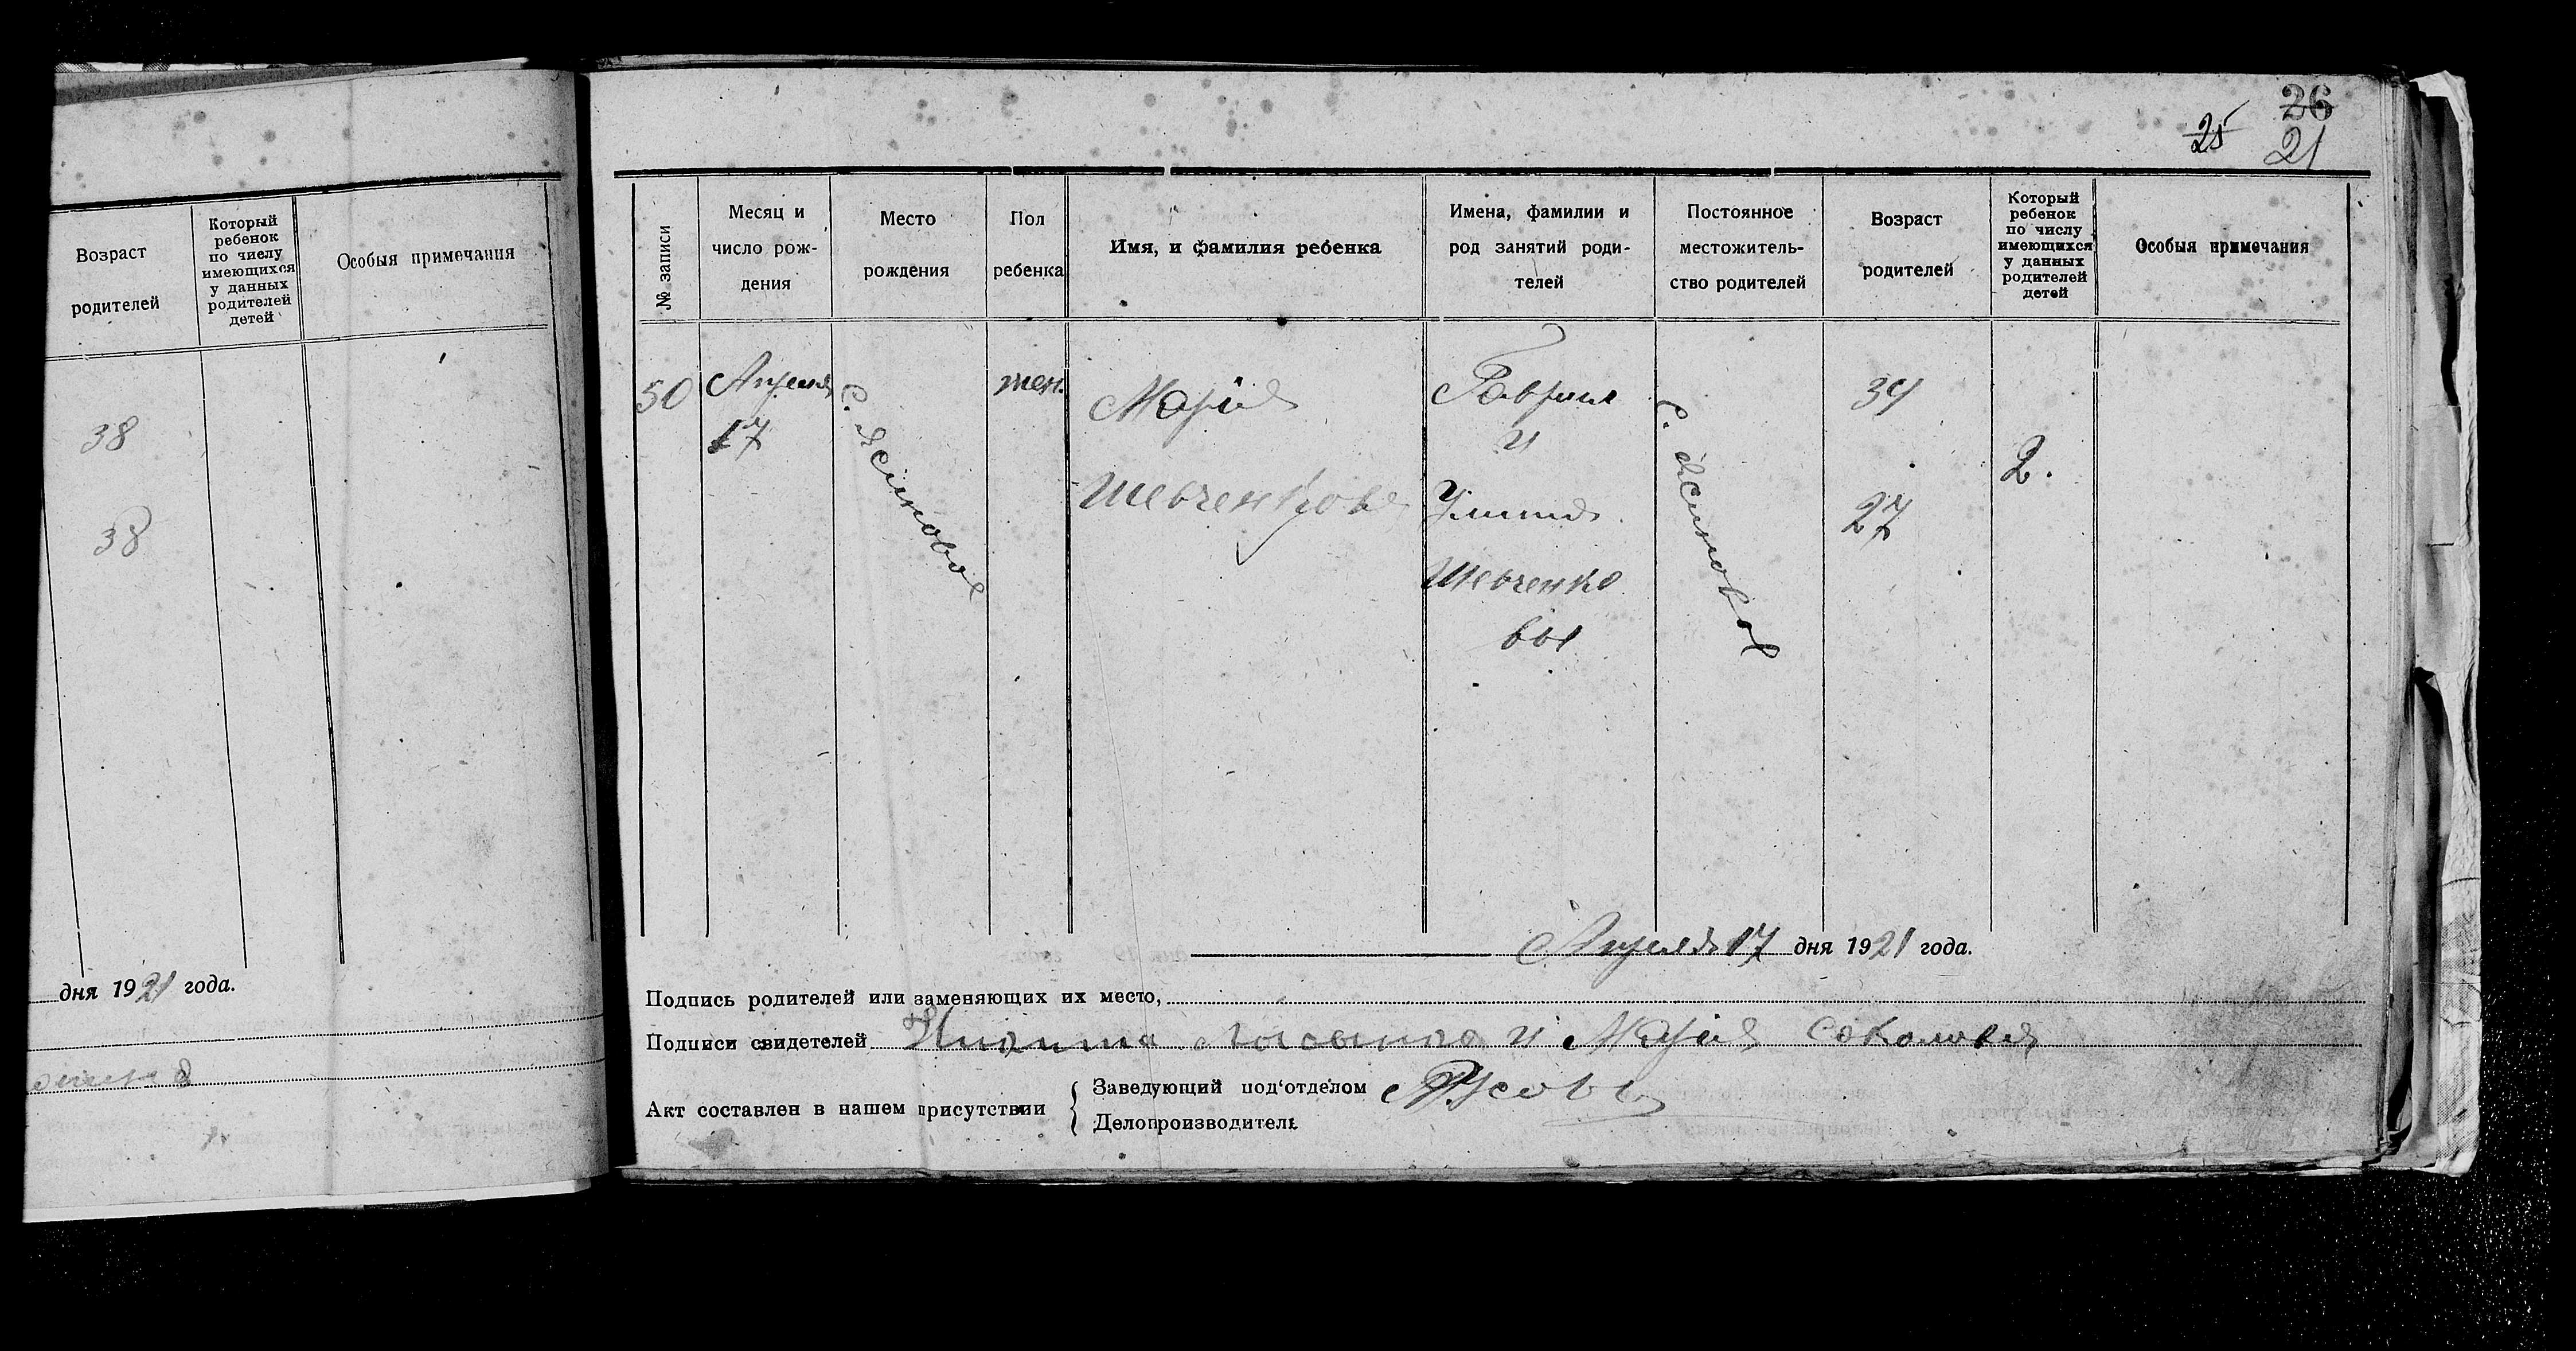 Возраст
родителей
Который
ребенок
по числу
имеющихся
у данных
родителей
детей
Особыя примечания
38
38
дня 1921 года.
26
25
21
№ записи
Месяц и
число рож-
дения
Место
рождения
Пол
ребенка
Имя, и фамилия ребенка
Имена, фамилии и
род занятий роди-
телей
Постоянное
местожитель-
ство родителей
Возраст
родителей
Который
ребенок
по числу
имеющихся
у данных
родителей
детей
Особыя примечания
50
Апреля
17
с. Ясиновое
жен.
Марія
Шевченкова
Гавриил
и
Шевченко
вы
с. Ясиновое
34
27
2.
Апреля 17 дня 1921 года.
Подпись родителей или заменяющих их место,
Подписи свидетелей Никита и Марія Соколовая
Акт составлен в нашем присутствии
Заведующий под'отделом
Делопроизводитель